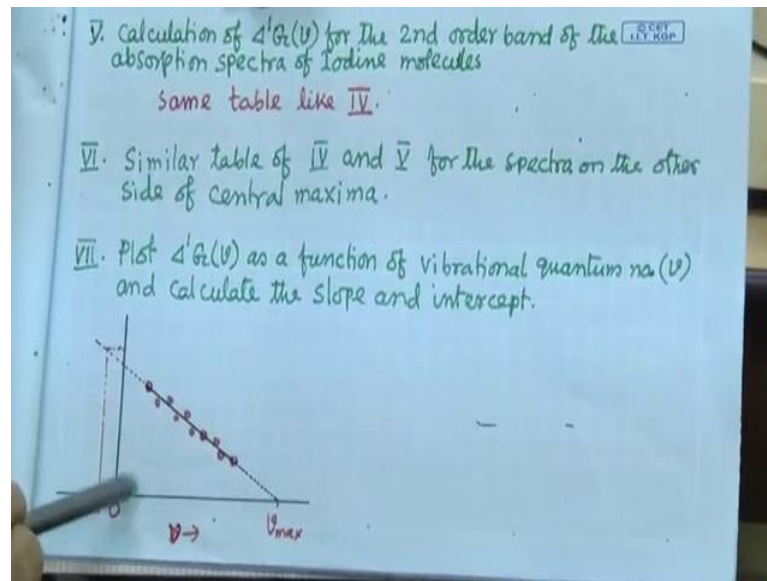 V. Calculation of Δ'G(υ) for the 2nd order band of the
© CET
I.I.T. KGP
absorption spectra of Iodine molecules
Same table like IV.
VI. Similar table of IV and V for the spectra on the other
side of central maxima.
VII. Plot Δ'G(υ) as a function of vibrational quantum no. (υ)
and calculate the slope and intercept.
0
υ→
υmax